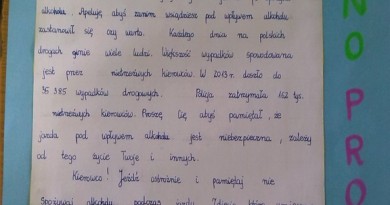 alkoholu. Apeluję, abyś zanim wsiądziesz pod wpływem alkoholu
zastanowił się czy warto. Każdego dnia na polskich
drogach ginie wiele ludzi. Większość wypadków spowodowana
jest przez nietrzeźwych kierowców. W 2013 r. doszło do
35 385 wypadków drogowych. Policja zatrzymała 162 tyś.
nietrzeźwych kierowców. Proszę Cię abyś pamiętał, że
jazda pod wpływem alkoholu jest niebezpieczna, zależy
od tego życie Twoje i innych.
Kierowco! Jeźdź ostrożnie i pamiętaj nie
spożywaj alkoholu podczas jazdy.
NO PRO